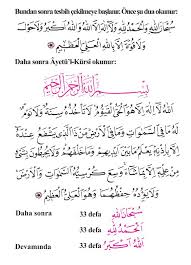 Bundan sonra tesbih çekilmeye başlanır. Önce şu dua okunur:
سُبْحَانَ اللّٰهِ وَالْحَمْدُ لِلّٰهِ وَلَا اِلٰهَ اِلَّا اللّٰهُ وَاللّٰهُ اَكْبَرُ
وَلَا حَوْلَ وَلَا قُوَّةَ اِلَّا بِاللّٰهِ الْعَلِيِّ الْعَظِيمِ
Daha sonra Âyetü'l-Kürsî okunur:
بِسْمِ اللّٰهِ الرَّحْمٰنِ الرَّحِيمِ
اَللّٰهُ لَا اِلٰهَ اِلَّا هُوَ الْحَيُّ الْقَيُّومُ لَا تَأْخُذُهُ سِنَةٌ وَلَا نَوْمٌ
لَهُ مَا فِي السَّمٰوَاتِ وَمَا فِي الْاَرْضِ مَنْ ذَا الَّذِي يَشْفَعُ عِنْدَهُ
وَلَا يَؤُدُهُ حِفْظُهُمَا وَهُوَ الْعَلِيُّ الْعَظِيمُ
Daha sonra 33 defa سُبْحَانَ اللّٰهِ
33 defa اَلْحَمْدُ لِلّٰهِ
Devamında 33 defa اَللّٰهُ اَكْبَرُ